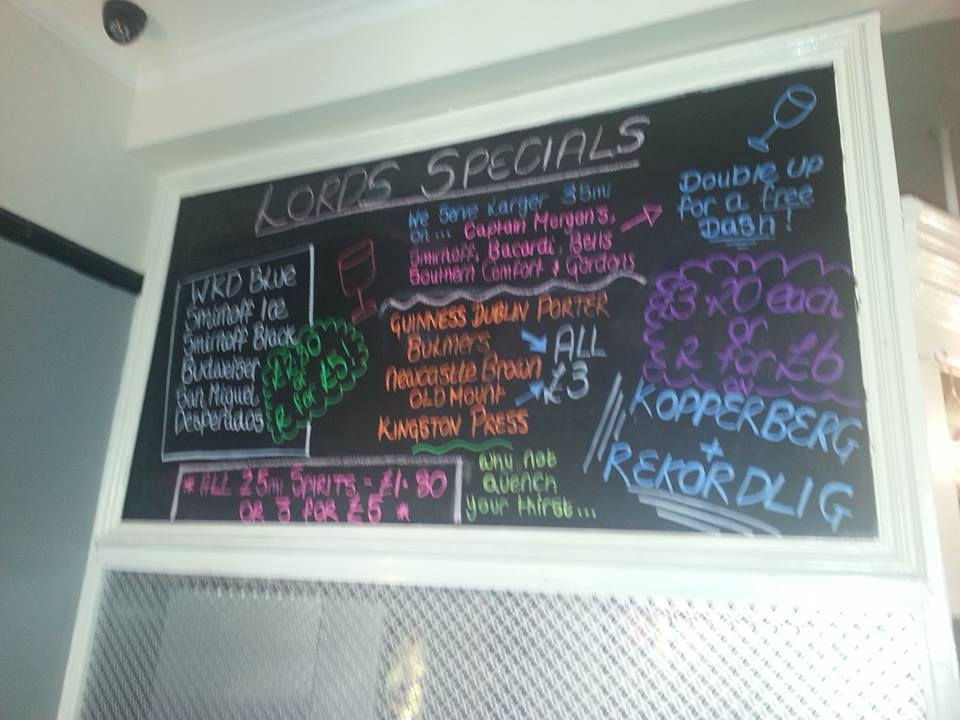 LORDS SPECIALS
We Serve Larger 35ml
on ... Captain Morgan's,
Smirnoff, Bacardi, Bells
Southern Comfort & Gordons
Double up
for a free
Dash!
WKD Blue
Smirnoff Ice
Smirnoff Black
Budweiser
San Miguel
Desperados
2 for £5!
GUINNESS DUBLIN PORTER
Bulmers
Newcastle Brown
OLD MOUNT
KINGSTON PRESS
ALL
£3
£3 x20 each
or
2 for £6
on
KOPPERBERG
+
REKORDLIG
* ALL 25ml SPIRITS = £1.80
OR 3 FOR £5 *
Why not
quench
your thirst...